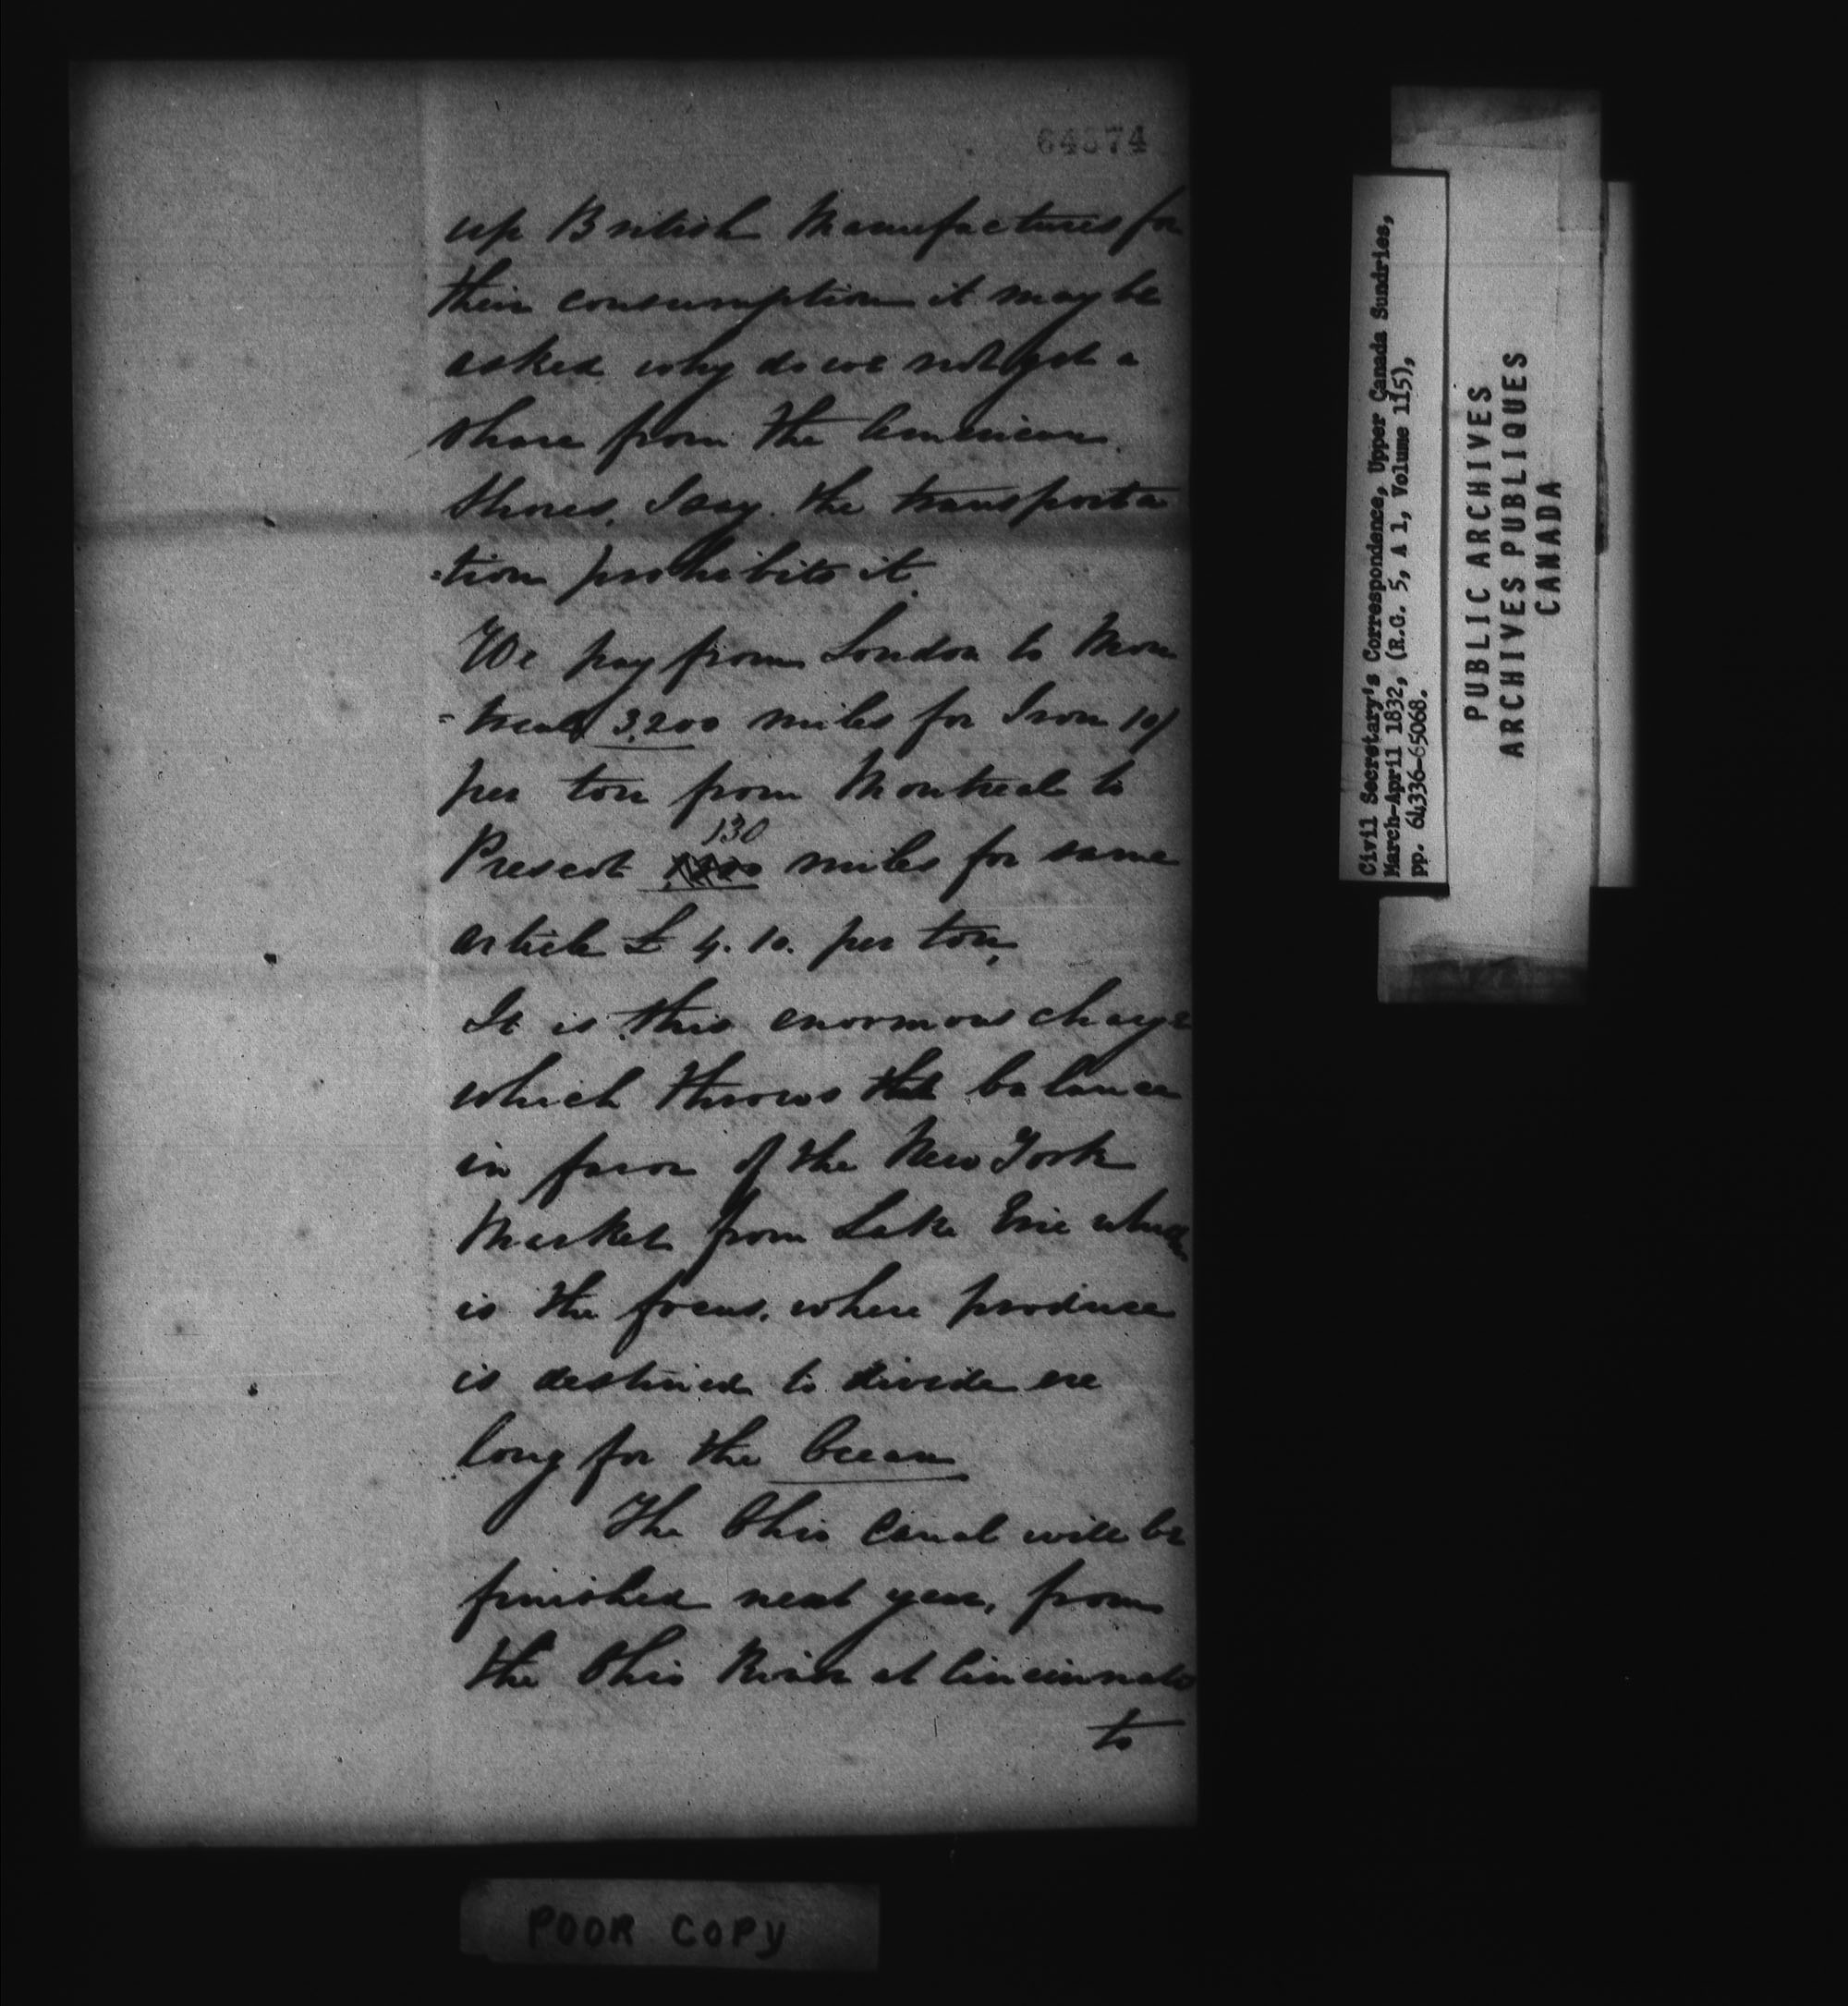 64374
up British Manufactures for
their consumption it may be
asked why do we not get a
share from the American
Shores, I say the transporta
=tion prohibits it
We pay from London to Mon
=treal 3,200 miles for Iron 10/
per ton from Montreal to
130
Prescot miles for same
article £ 4. 10. per ton,
It is this enormous charge
which throws the balance
in favor of the New York
Market from Lake Erie which
is the focus, where produce
is destined to divide ere
long for the Ocean
The Ohio Canal will be
finished next year, from
the Ohio River at Cincinnato
to
POOR COPY
Civil Secretary's Correspondence, Upper Canada Sundries,
March-April 1832, (R.G. 5, A 1, Volume 115),
pp. 64336-65068.
PUBLIC ARCHIVES
ARCHIVES PUBLIQUES
CANADA